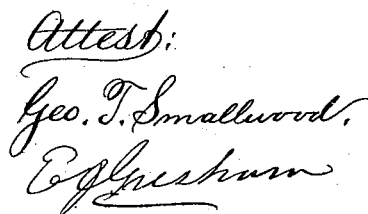 Attest:
Geo. T. Smallwood.
E J Gresham